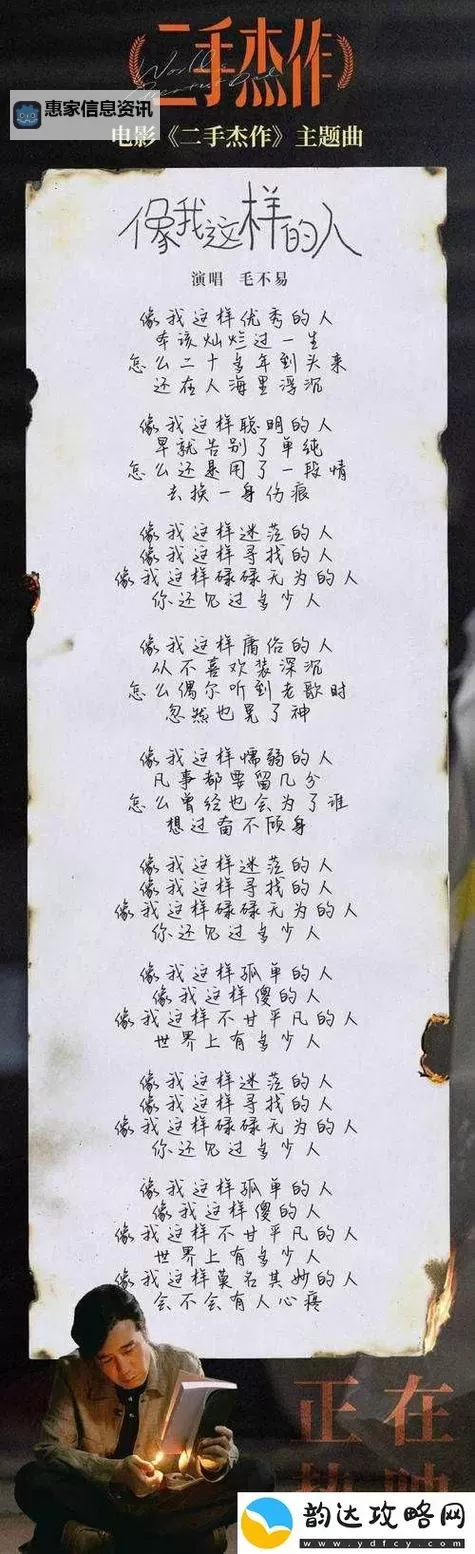 二手杰作
World's
Greatest Dad
惠家信息资讯
电影《二手杰作》主题曲
像我这样的人
演唱 毛不易
像我这样优秀的人
本该灿烂过一生
怎么二十多年到头来
还在人海里浮沉
像我这样聪明的人
早就告别了单纯
怎么还是用了一段情
去换一身伤痕
像我这样迷茫的人
像我这样寻找的人
像我这样碌碌无为的人
你还见过多少人
像我这样庸俗的人
从不喜欢装深沉
怎么偶尔听到老歌时
忽然也晃了神
像我这样懦弱的人
凡事都要留几分
怎么曾经也会为了谁
想过奋不顾身
像我这样迷茫的人
像我这样寻找的人
像我这样碌碌无为的人
你还见过多少人
像我这样孤单的人
像我这样傻的人
像我这样不甘平凡的人
世界上有多少人
像我这样迷茫的人
像我这样寻找的人
像我这样碌碌无为的人
你还见过多少人
像我这样孤单的人
像我这样傻的人
像我这样不甘平凡的人
世界上有多少人
像我这样莫名其妙的人
会不会有人心疼
正在
热映
韵达攻略网
www.ydfcy.com